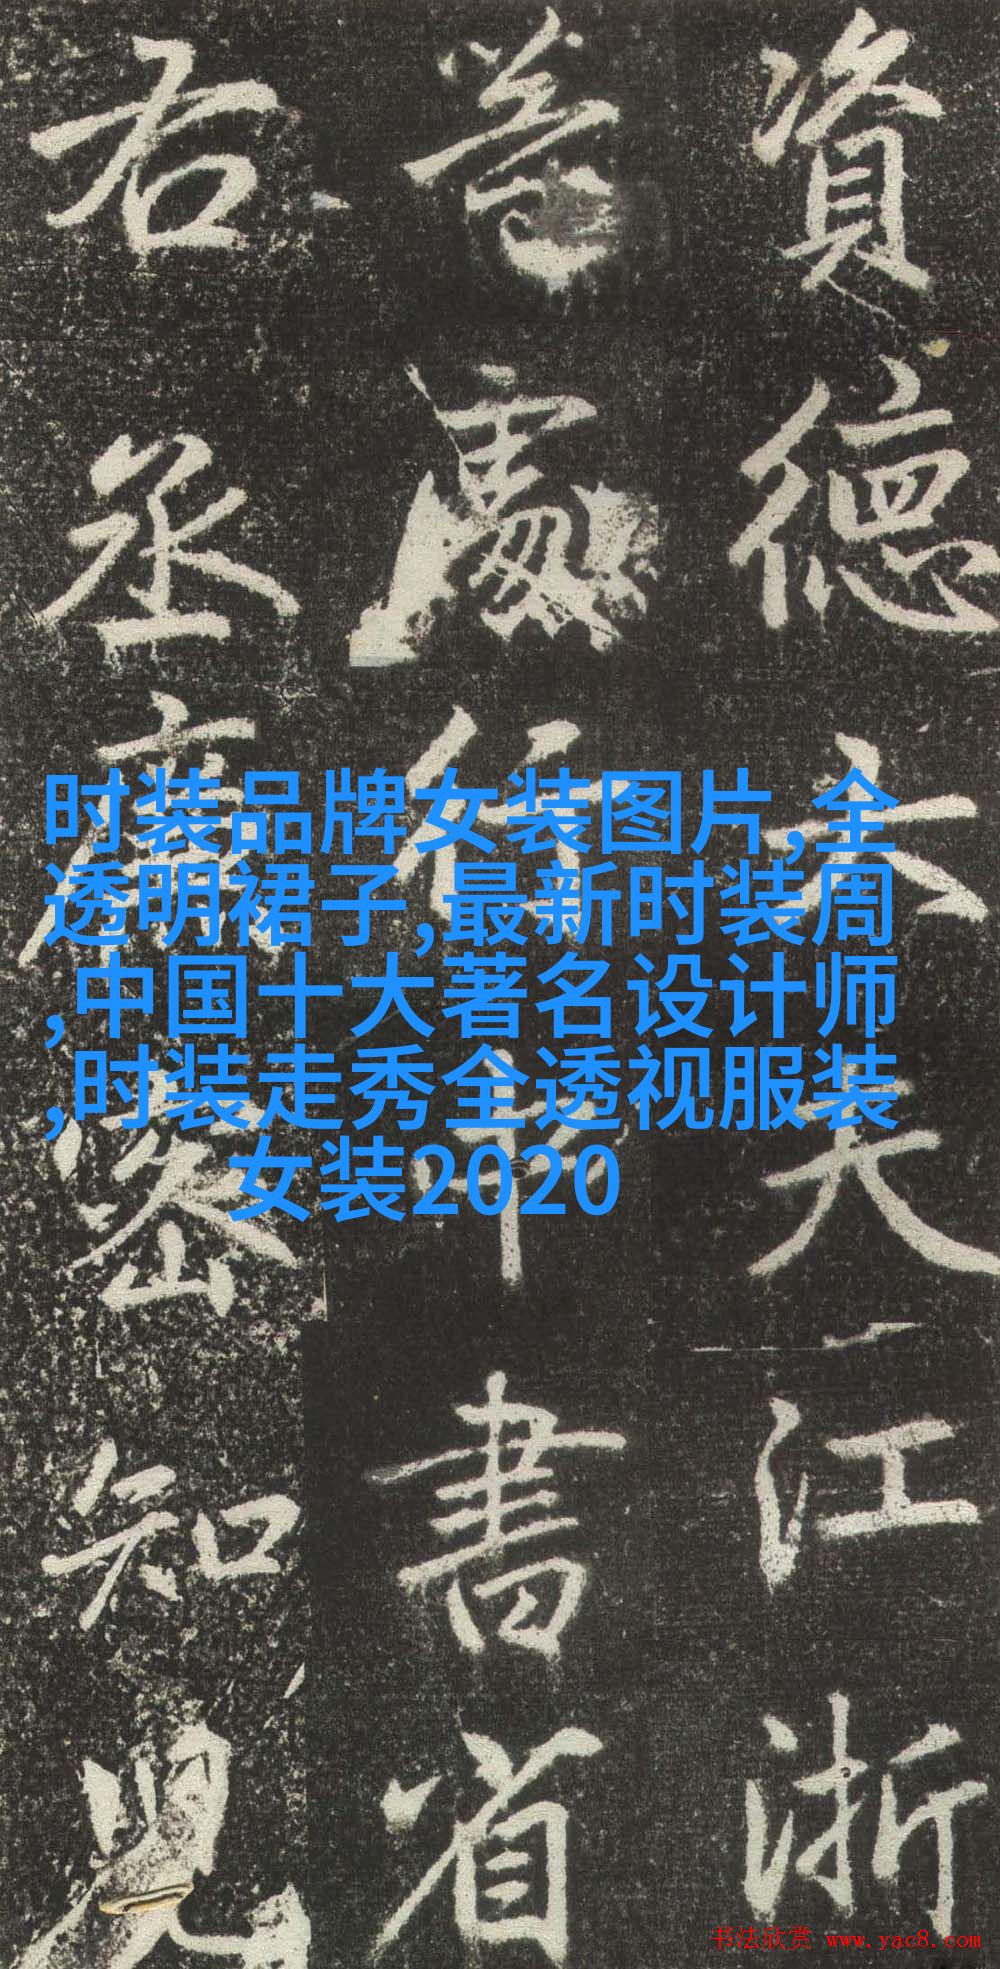 資德大夫江浙
等處行中書省
右丞兼密知
时装品牌女装图片,全
透明裙子,最新时装周
,中国十大著名设计师
,时装走秀全透视服装
女装2020
书法欣赏 www.yac8.com